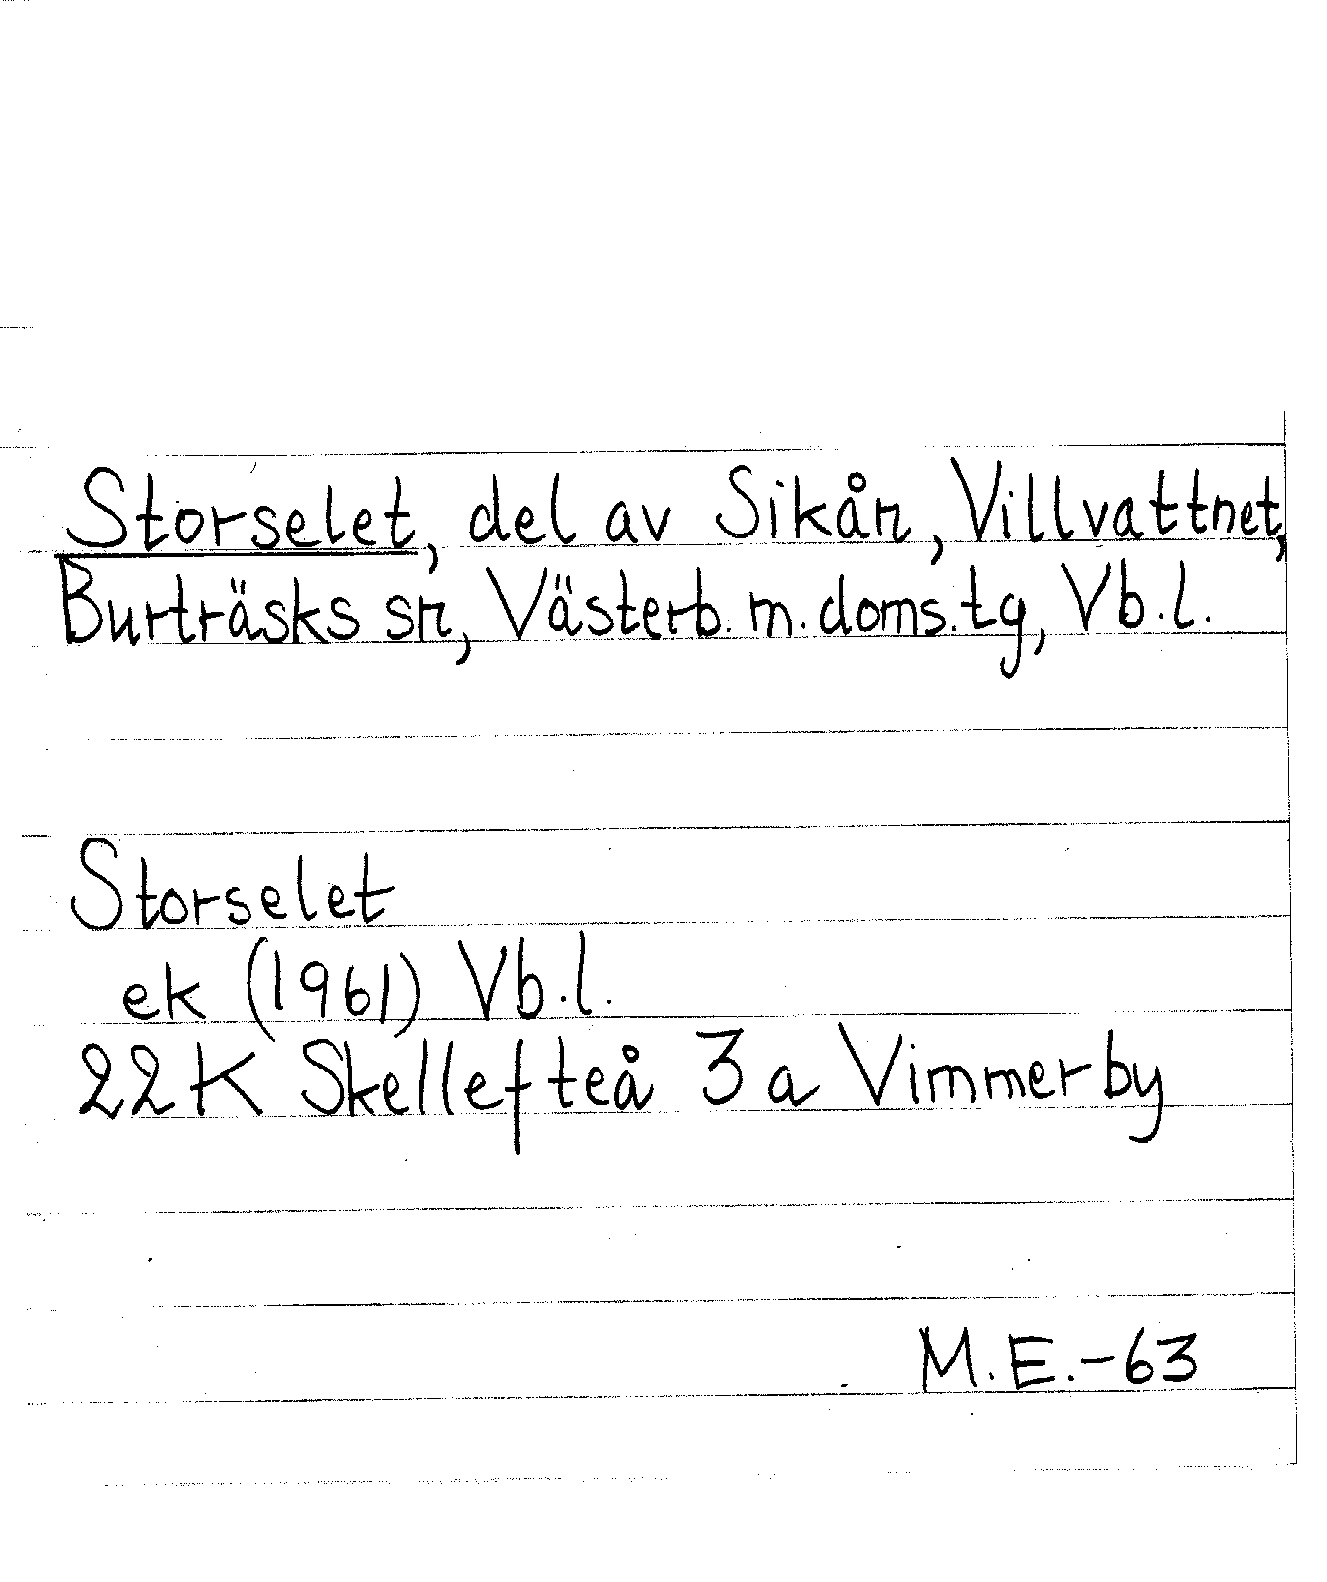 Storselet, del av Sikån, Villvattnet,
Burträsks sn, Västerb. m. doms. tg, Vb.l.
Storselet
ek (1961) Vb.l.
22K Skellefteå 3a Vimmerby
M.E.-63